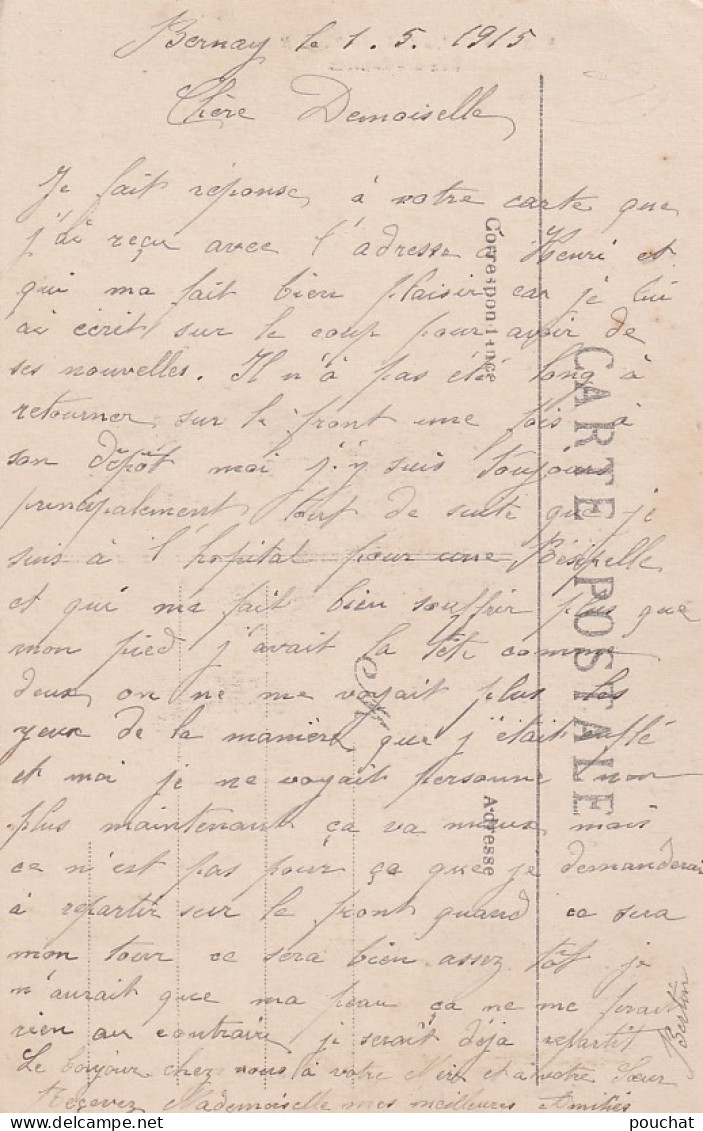 Bernay le 1.5.1915
Chère Demoiselle
Je fait réponse à notre carte que
j'ai reçu avec l'adresse à Henri et
qui ma fait bien plaisir car je lui
ai écrit sur le coup pour avoir de
ses nouvelles. Il n'à pas été long à
retourner sur le front une fois à
son dépôt moi j'y suis toujours
principalement tout de suite que je
suis à l'hopital pour une
et qui me fait bien souffrir plus que
mon pied j'avait la tête comme
deux on ne me voyait plus les
yeux de la manière que j'était enflé
et moi je ne voyait personne non
plus maintenant ça va mieux mais
ce n'est pas pour ça que je demanderai
à repartir sur le front quand ce sera
mon tour ce sera bien assez tôt je
n'aurait que ma peau ça ne me
rien au contraire je serait déjà repartit
Le bonjour chez vous à votre Mère et à votre Sœur
Recevez Mademoiselle mes meilleures Amitiés
Bertin
CARTE POSTALE
Correspondance
Adresse
pouchat